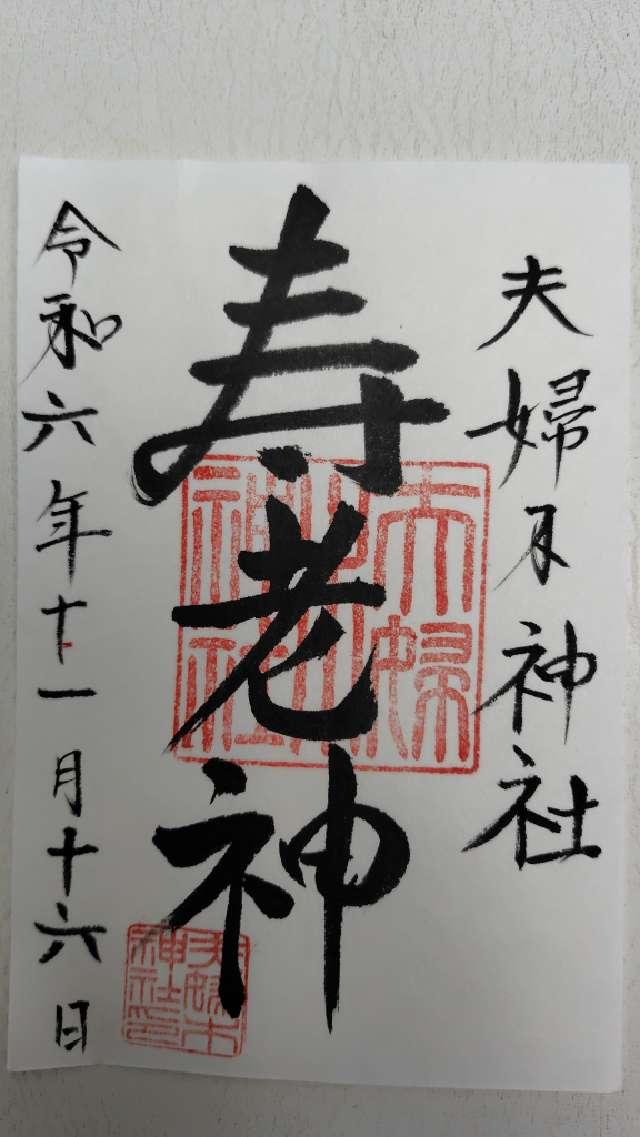 夫婦木神社
寿老神
令和六年十一月十六日
夫婦木神社
夫婦木神社印